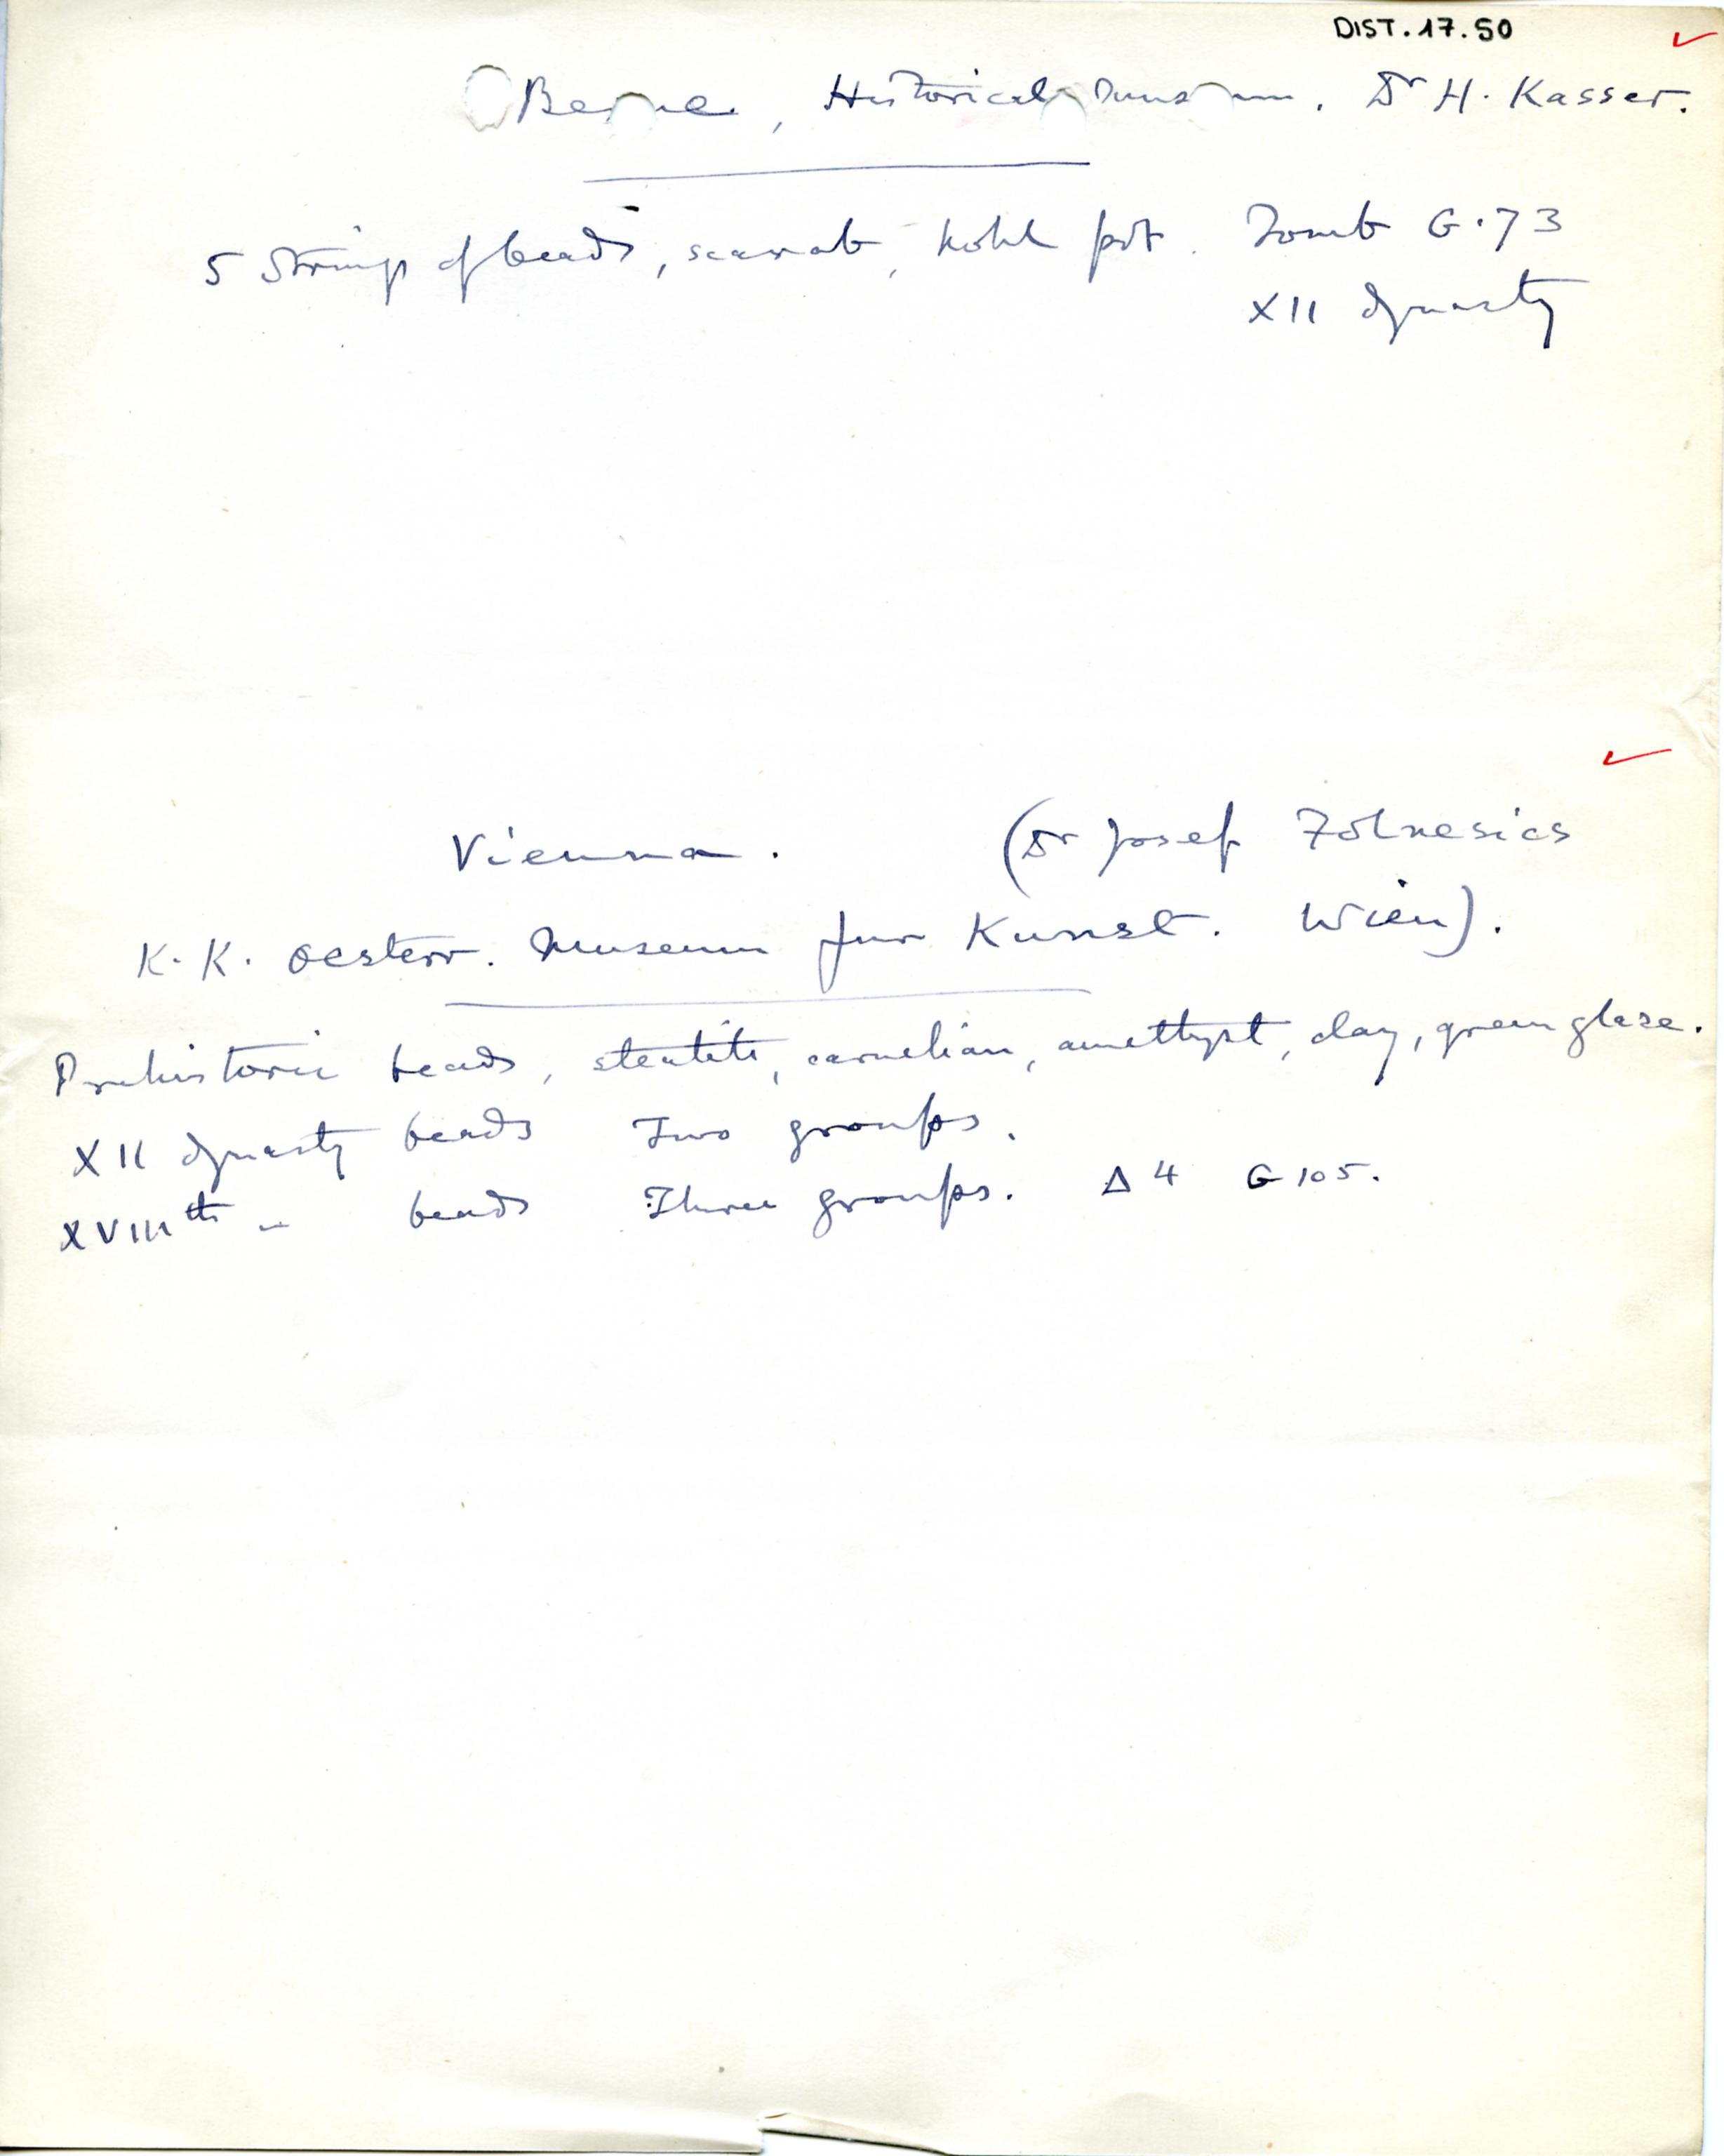 DIST. 17. 50
Berne, Historical Museum. Dr H. Kasser.
5 Strings of beads, scarab, kohl pot. Tomb G.73
XII dynasty
Vienna. (Dr Josef Folnesics
K. K. oesterr. Museum fur Kunst. Wien).
Prehistoric beads, steatite, carnelian, amethyst, clay, green glaze.
XII dynasty beads Two groups.
XVIIIth " beads Three groups. Δ 4 G 105.